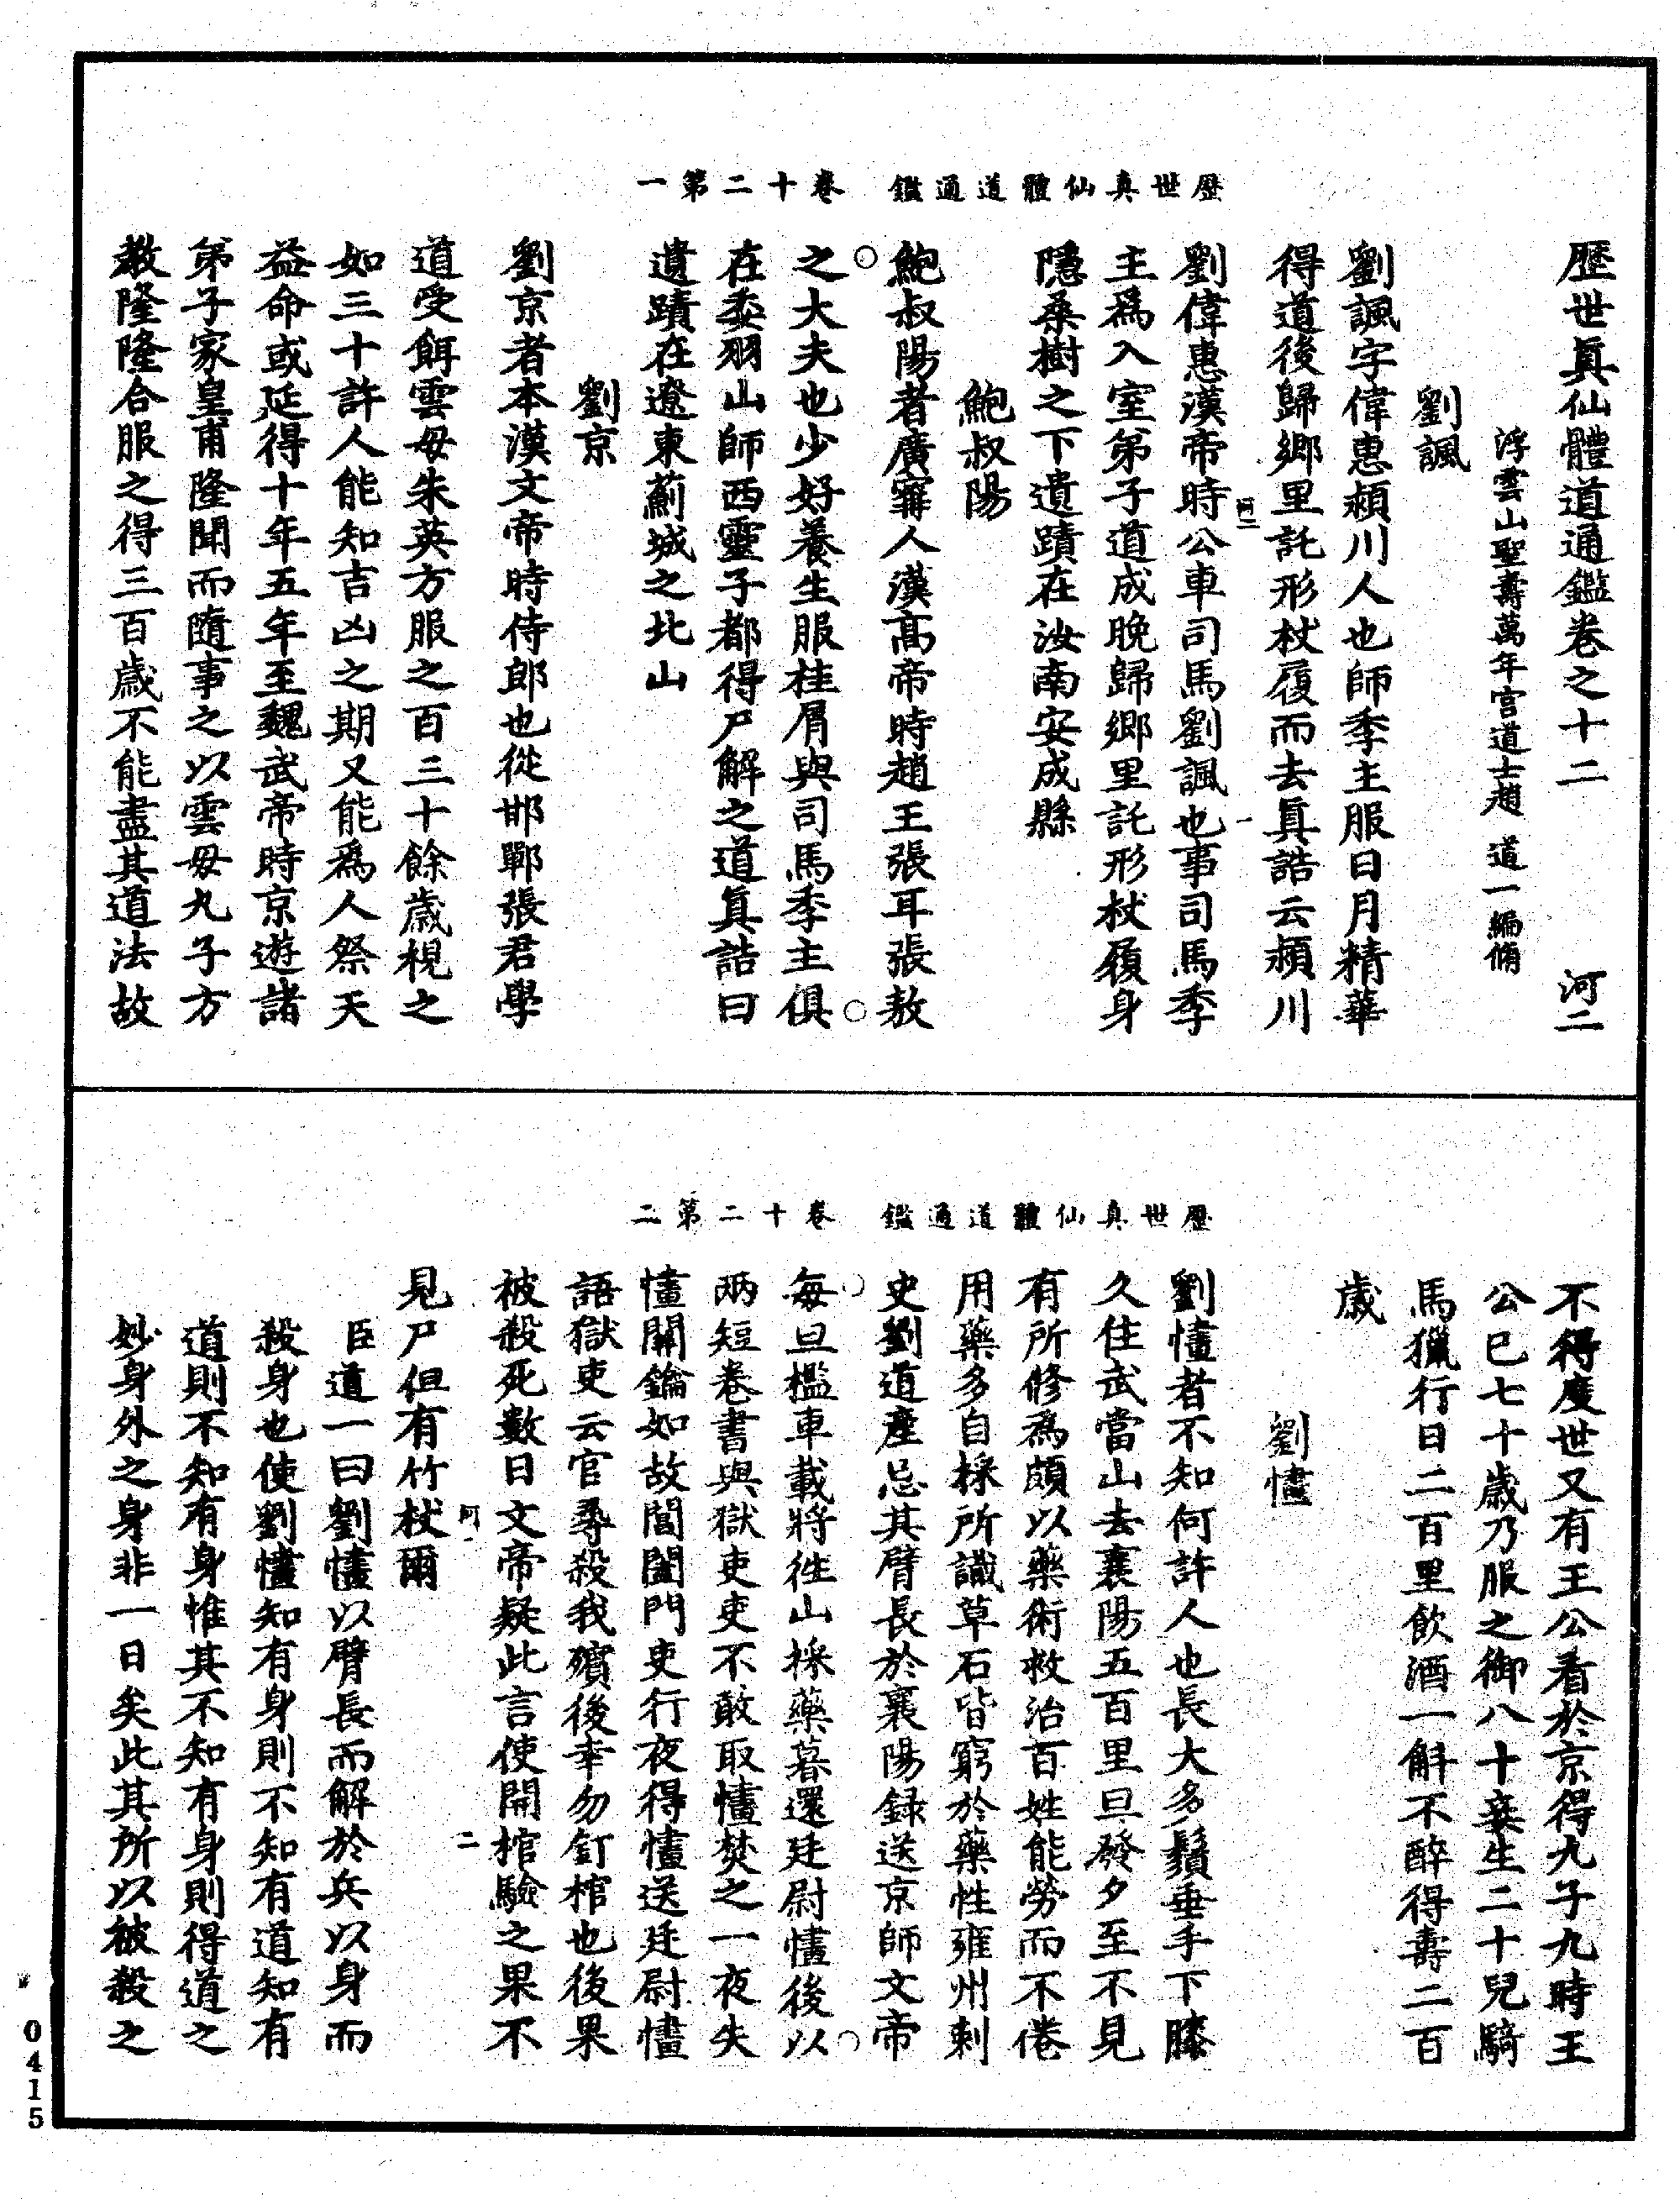 歷世真仙體道通鑑　卷十二第一
歷世眞仙體道通鑑卷之十二　河二
浮雲山聖壽萬年宮道士趙　道一編脩
劉諷
劉諷字偉惠潁川人也師季主服日月精華
得道後歸鄉里託形杖履而去眞誥云潁川
河二　一
劉偉惠漢帝時公車司馬劉諷也事司馬季
主爲入室第子道成晚歸鄉里託形杖履身
隱桑樹之下遺蹟在汝南安成縣
鮑叔陽
鮑叔陽者廣寧人漢高帝時趙王張耳張敖
之大夫也少好養生服桂屑與司馬季主俱
在委羽山師西靈子都得尸解之道眞誥曰
遺蹟在遼東薊城之北山
劉京
劉京者本漢文帝時侍郎也從邯鄲張君學
道受餌雲母朱英方服之百三十餘歲視之
如三十許人能知吉凶之期又能爲人祭天
益命或延得十年五年至魏武帝時京遊諸
弟子家皇甫隆聞而隨事之以雲母九子方
教隆隆合服之得三百歲不能盡其道法故
歷世真仙體道通鑑　卷十二第二
不得度世又有王公看於京得九子九時王
公已七十歲乃服之御八十妾生二十兒騎
馬獵行日二百里飲酒一斛不醉得壽二百
歲
劉㦎
劉㦎者不知何許人也長大多鬚垂手下膝
久住武當山去襄陽五百里旦發夕至不見
有所修爲頗以藥術救治百姓能勞而不倦
用藥多自採所識草石皆窮於藥性雍州刺
史劉道產忌其臂長於襄陽錄送京師文帝
每旦檻車載將徃山採藥暮還廷尉㦎後以
兩短卷書與獄吏吏不敢取㦎焚之一夜失
㦎關鑰如故閶闔門吏行夜得㦎送廷尉㦎
語獄吏云官尋殺我殯後幸勿釘棺也後果
被殺死數日文帝疑此言使開棺驗之果不
河二　二
見尸但有竹杖爾
臣道一曰劉㦎以臂長而解於兵以身而
殺身也使劉㦎知有身則不知有道知有
道則不知有身惟其不知有身則得道之
妙身外之身非一日矣此其所以被殺之
0415